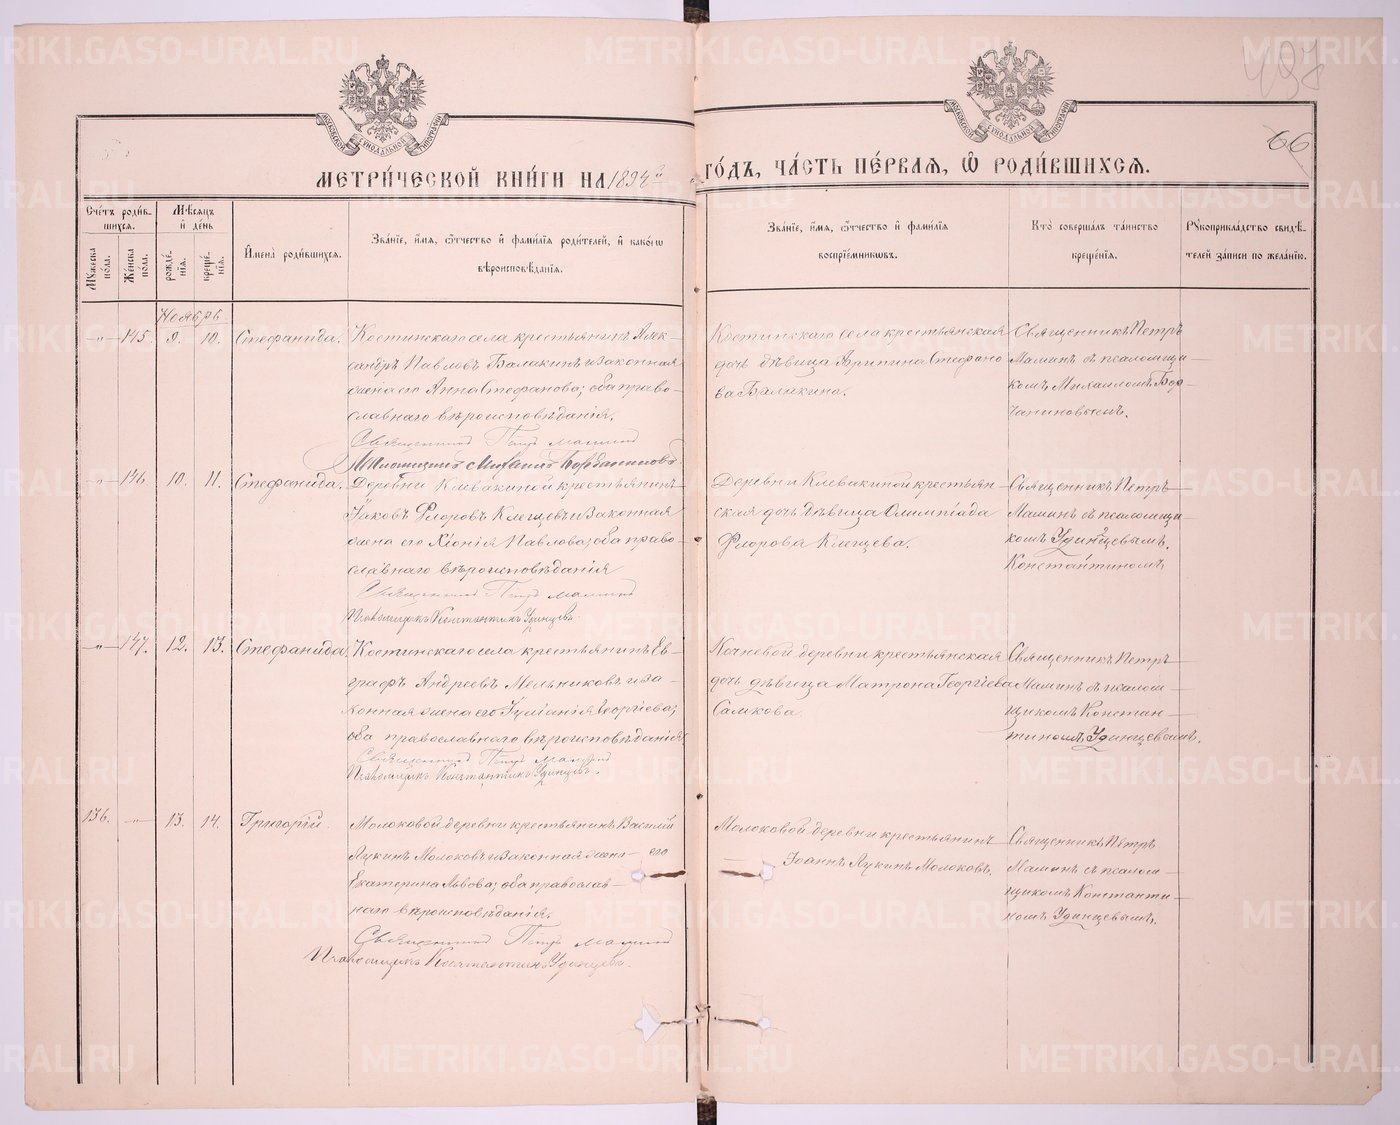 498
66
МЕТРИ́ЧЕСКОЙ КНИ́ГИ НА 1894й ГО́ДЪ, ЧА́СТЬ ПЕ́РВАЯ, Ѡ РОДИ́ВШИХСЯ.
Сче́тъ роди́в-
шихся.
Мꙋжеска пола.
Же́нска пола.
Мѣ́сяцъ
и҆ де́нь
рожде́-
нїя.
креще́-
нїя.
И҆мена̀ роди́вшихся.
Зва́нїе, и҆́мя, ѻ҆́тчество и҆ фами́лїя роди́телей, и҆ како́гѡ
вѣроисповѣ́данїя.
Зва́нїе, и҆́мя, ѻ҆́тчество и҆ фами́лїя
воспрїе́мниковъ.
Кто̀ соверша́лъ та́инство
креще́нїя.
Рꙋкоприкла́дство свидѣ́-
телей за́писи по жела́нїю.
Ноябрь
-„- 145. 9. 10. Стефанида.
Костинскаго села крестьянинъ Алек-
сандръ Павловъ Балакинъ и законная
жена его Анна Стефанова; оба право-
славнаго вѣроисповѣданія.
Священникъ Петръ Маминъ
Псаломщикъ Михаилъ
Костинскаго села крестьянская
дочь дѣвица Агрипина Стефано
ва Балакина.
Священникъ Петръ
Маминъ съ псаломщи-
комъ Михаиломъ Бор-
чаниновымъ.
-„- 146. 10. 11. Стефанида.
Деревни Клевакиной крестьянинъ
Іаковъ Флоровъ Клещевъ и законная
жена его Хіонія Павлова; оба право-
славнаго вѣроисповѣданія
Священникъ Петръ Маминъ
Псаломщикъ Константинъ Удинцевъ.
Деревни Клевакиной крестьян-
ская дочь дѣвица Олимпіада
Флорова Клещева.
Священникъ Петръ
Маминъ съ псаломщи-
комъ Удинцевымъ.
Константиномъ
-„- 147. 12. 13. Стефанида.
Костинскаго села крестьянинъ Ев-
графъ Андреевъ Мельниковъ и за-
конная жена его Іуліанія Георгіева;
оба православнаго вѣроисповѣданія.
Священникъ Петръ Маминъ
Псаломщикъ Константинъ Удинцевъ.
Кочневой деревни крестьянская
дочь дѣвица Матрона Георгіева
Самкова
Священникъ Петръ
Маминъ съ псалом-
щикомъ Констан-
тиномъ Удинцевымъ.
136. -„- 13. 14. Григорій.
Молоковой деревни крестьянинъ Василій
Лукинъ Молоковъ и законная жена его
Екатерина Львова; оба православ-
наго вѣроисповѣданія.
Священникъ Петръ Маминъ
Псаломщикъ Константинъ Удинцевъ.
Молоковой деревни крестьянинъ
Іоаннъ Лукинъ Молоковъ.
Священникъ Петръ
Маминъ съ псалом-
щикомъ Константи-
номъ Удинцевымъ.
METRIKI.GASO-URAL.RU